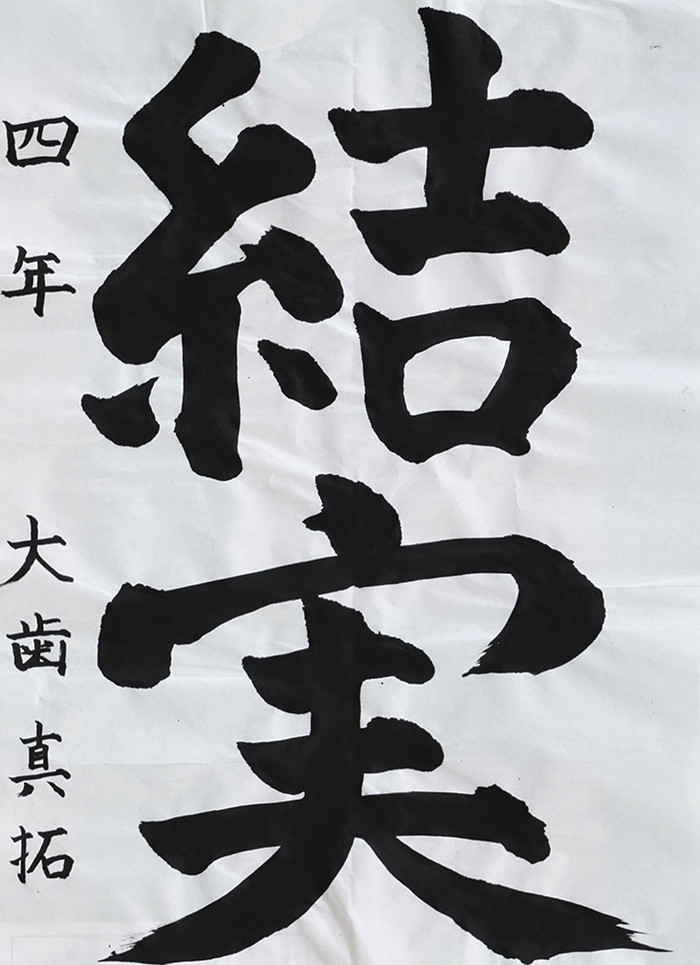 結実
四年 大歯真拓